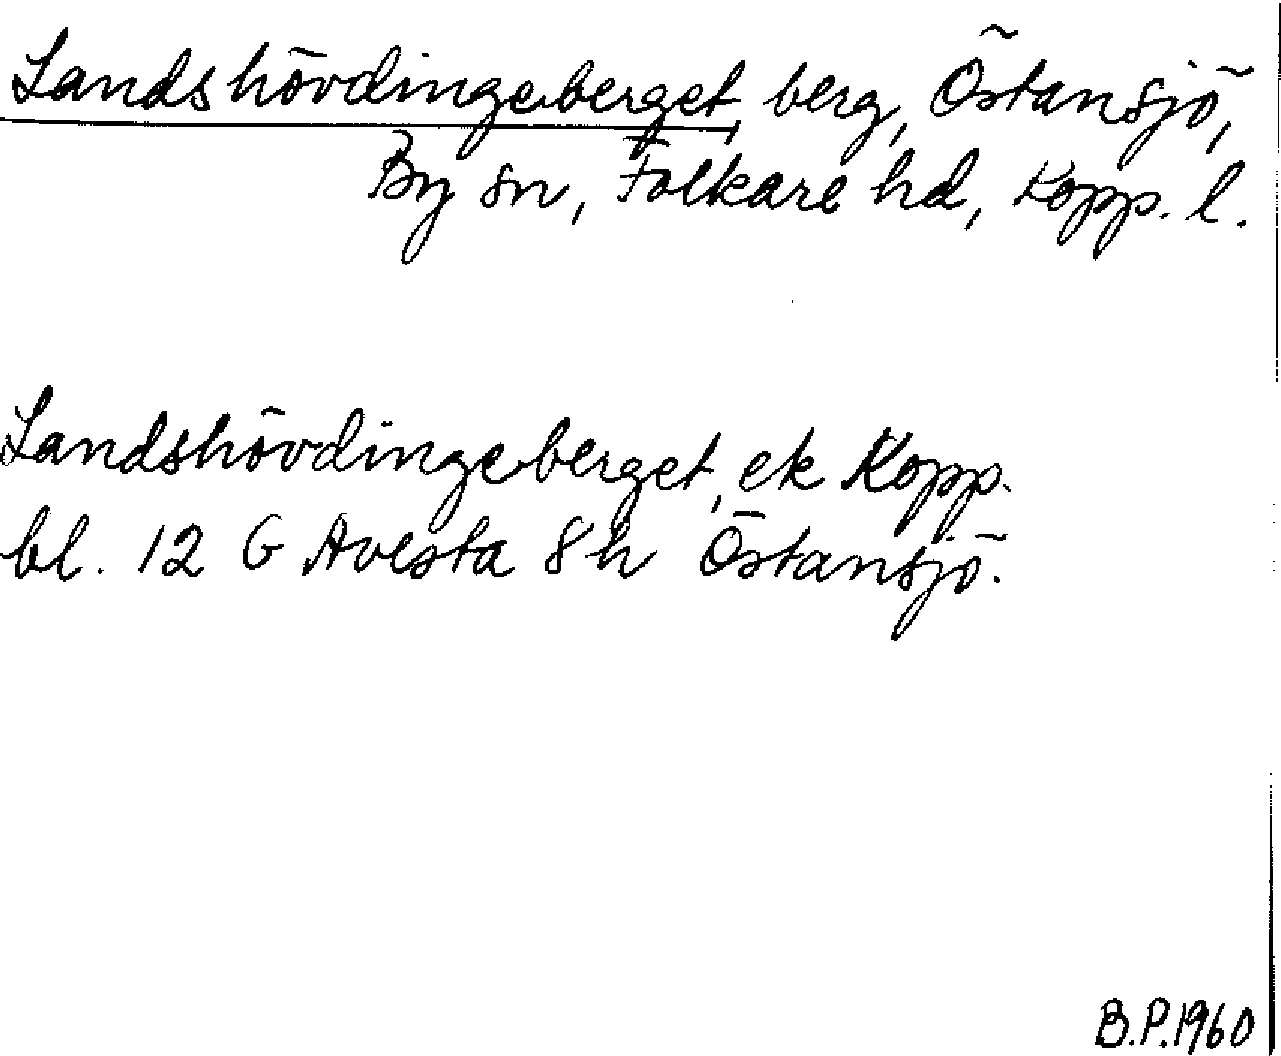 Landshövdingeberget, berg, Östansjö,
By sn, Folkare hd, Kopp. l.
Landshövdingeberget, ek Kopp.
bl. 12 G Avesta 8h Östansjö.
B.P.1960